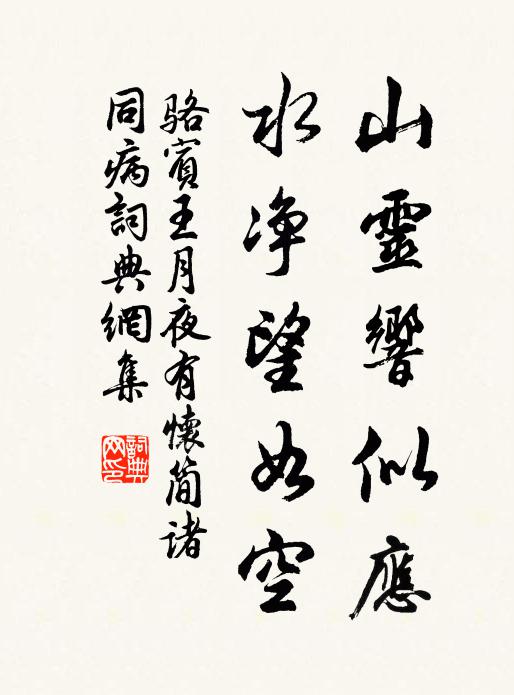 山靈響似應
水净望如空
駱賓王月夜有懷簡諸
同病詞典網集
詞典
网印